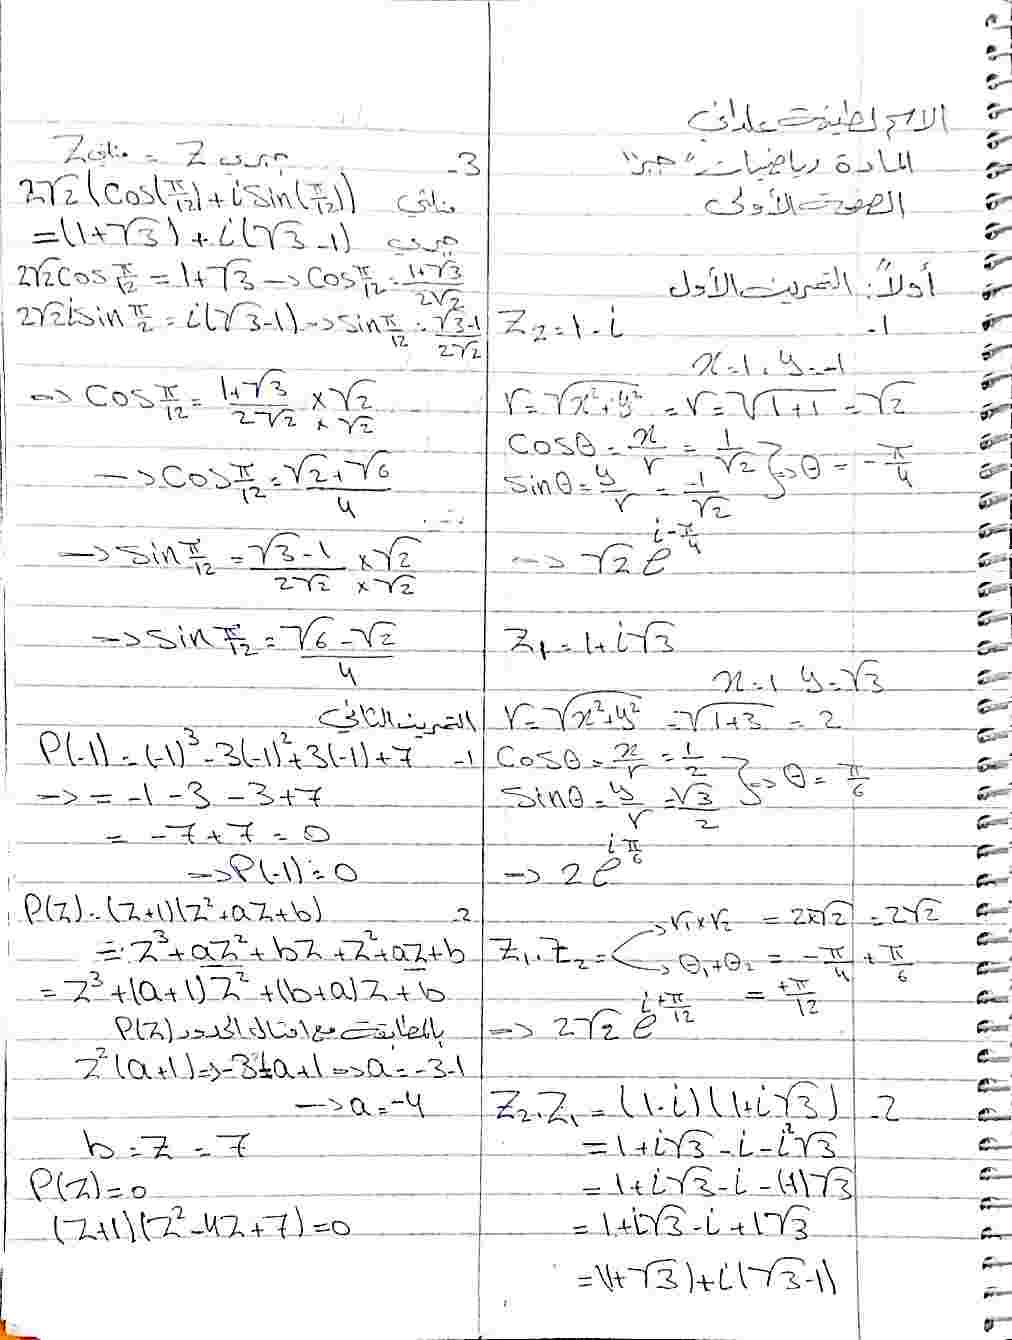 الاسم لطيفة علداني
المادة رياضيات "جبر"
الصفحة الأولى
أولاً: التمرين الأول
1-
Z₂=1-i
x=1, y=-1
r=√(x²+y²) = r=√(1+1)=√2
Cosθ=x/r=1/√2
Sinθ=y/r=-1/√2 } => θ=-π/4
→ √2 e^(i-π/4)
Z₁=1+i√3
x=1 y=√3
r=√(x²+y²)=√(1+3)=2
Cosθ=x/r=1/2
Sinθ=y/r=√3/2 } => θ=π/6
→ 2e^(iπ/6)
Z₁.Z₂= → r₁×r₂ = 2×√2 =2√2
→ θ₁+θ₂ = -π/4 + π/6
= +π/12
→ 2√2 e^(i+π/12)
2-
Z₂.Z₁=(1-i)(1+i√3)
=1+i√3-i-i²√3
=1+i√3-i-(-1)√3
=1+i√3-i+1√3
=(1+√3)+i(√3-1)
3-
Z مثلثي = Z جبري
2√2(Cos(π/12)+i Sin(π/12)) مثلثي
=(1+√3)+i(√3-1) جبري
2√2Cos π/12=1+√3→Cos π/12=(1+√3)/(2√2)
2√2i sin π/2=i(√3-1)→sin π/12=(√3-1)/(2√2)
→ Cos π/12=(1+√3)/(2√2) ×√2/×√2
→ Cos π/12=(√2+√6)/4
→ Sin π/12=(√3-1)/(2√2) ×√2/×√2
→ Sin π/12=(√6-√2)/4
التمرين الثاني
1-
P(-1)=(-1)³-3(-1)²+3(-1)+7
→ =-1-3-3+7
= -7+7=0
→P(-1)=0
2-
P(Z)=(Z+1)(Z²+aZ+b)
=Z³+aZ²+bZ+Z²+aZ+b
=Z³+(a+1)Z²+(b+a)Z+b
بالمطابقة مع امثال الحدود P(Z)
Z²(a+1)=>-3=a+1=>a=-3-1
→a=-4
b=Z=7
P(Z)=0
(Z+1)(Z²-4Z+7)=0